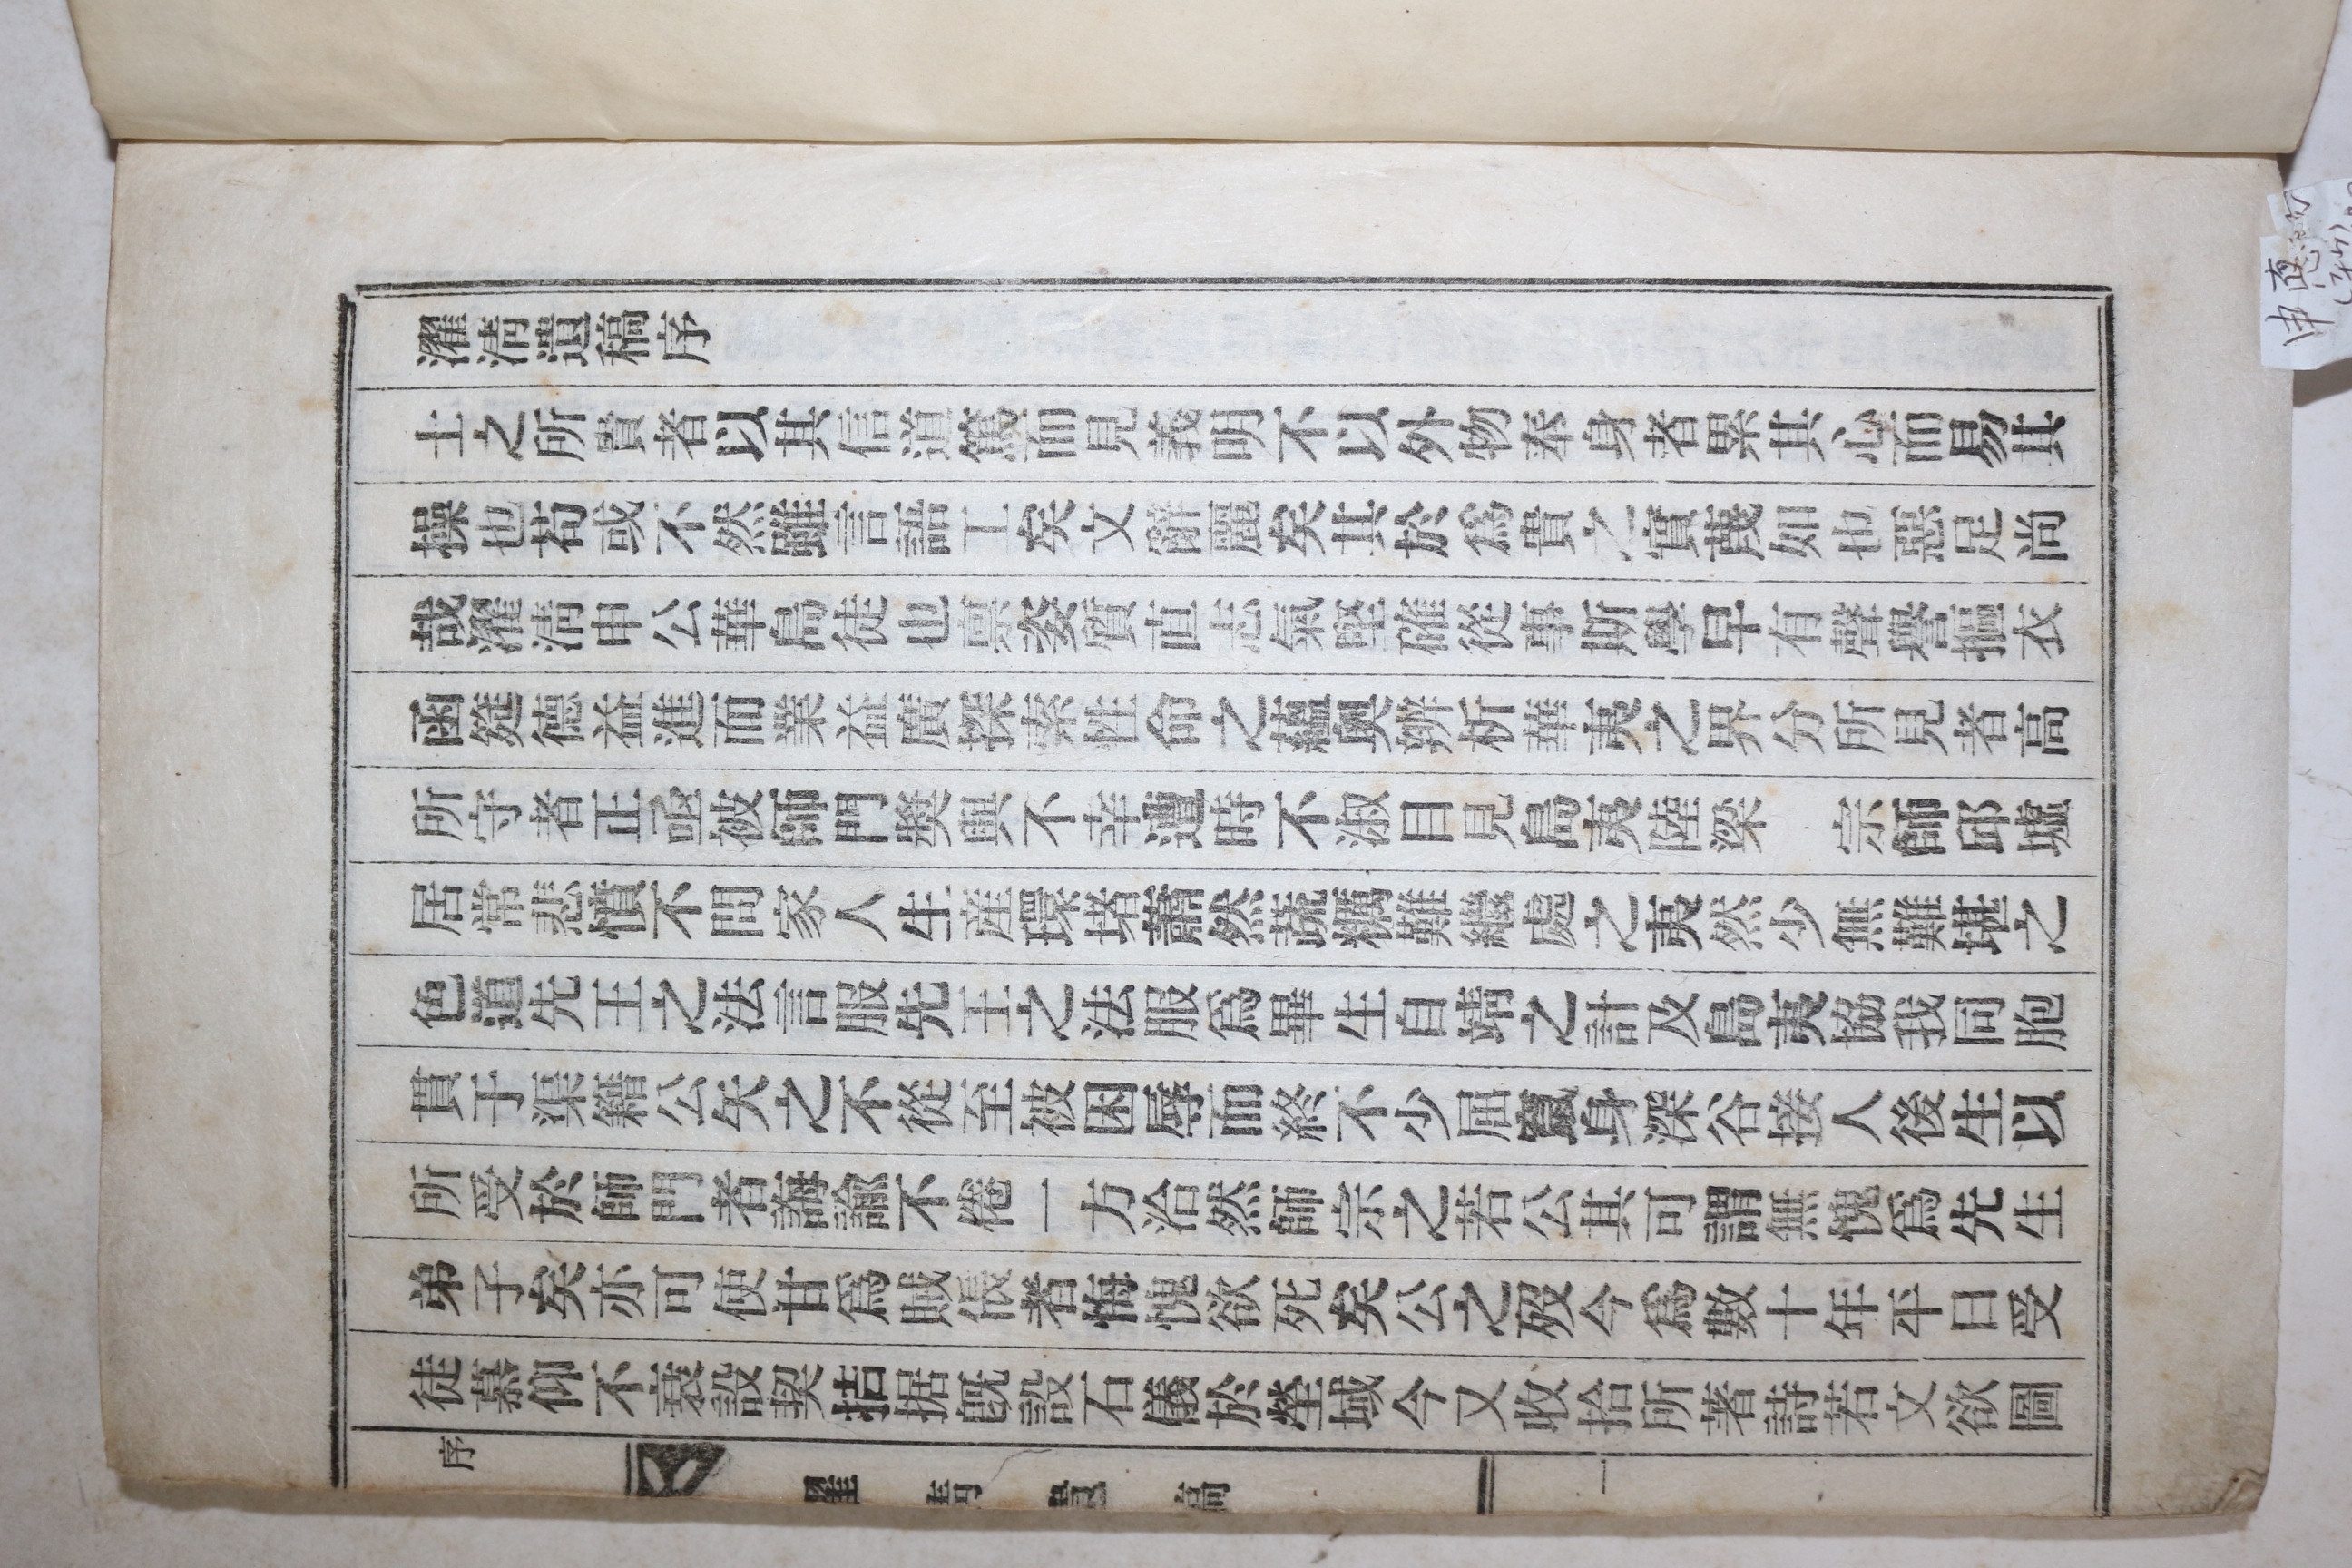 濯清遺稿序
士之所貴者以其信道篤而見義明不以外物奉身者累其心而易其
操也苟或不然雖言語工矣文辭麗矣其於爲貴之實蔑如也惡足尚
哉濯清申公華島徒也禀姿質直志氣堅確從事斯學早有聲譽摳衣
函筵德益進而業益廣探索性命之蘊奧辨析華夷之界分所見者高
所守者正亟被師門奬與不幸遭時不淑目見島夷陸梁 宗師邱墟
居常悲憤不問家人生産環堵蕭然蔬糲難繼處之夷然少無難堪之
色道先王之法言服先王之法服爲畢生自靖之計及島夷協我同胞
貫于渠籍公矢之不從至被困辱而終不少屈竄身深谷接人後生以
所受於師門者誨諭不倦一方洽然師宗之若公其可謂無愧爲先生
弟子矣亦可使甘爲賊倀者悔愧欲死矣公之歿今爲數十年平日受
徒慕仰不衰設契拮据旣設石儀於塋域今又收拾所著詩若文欲圖
序 濯清遺稿 一
申悳均